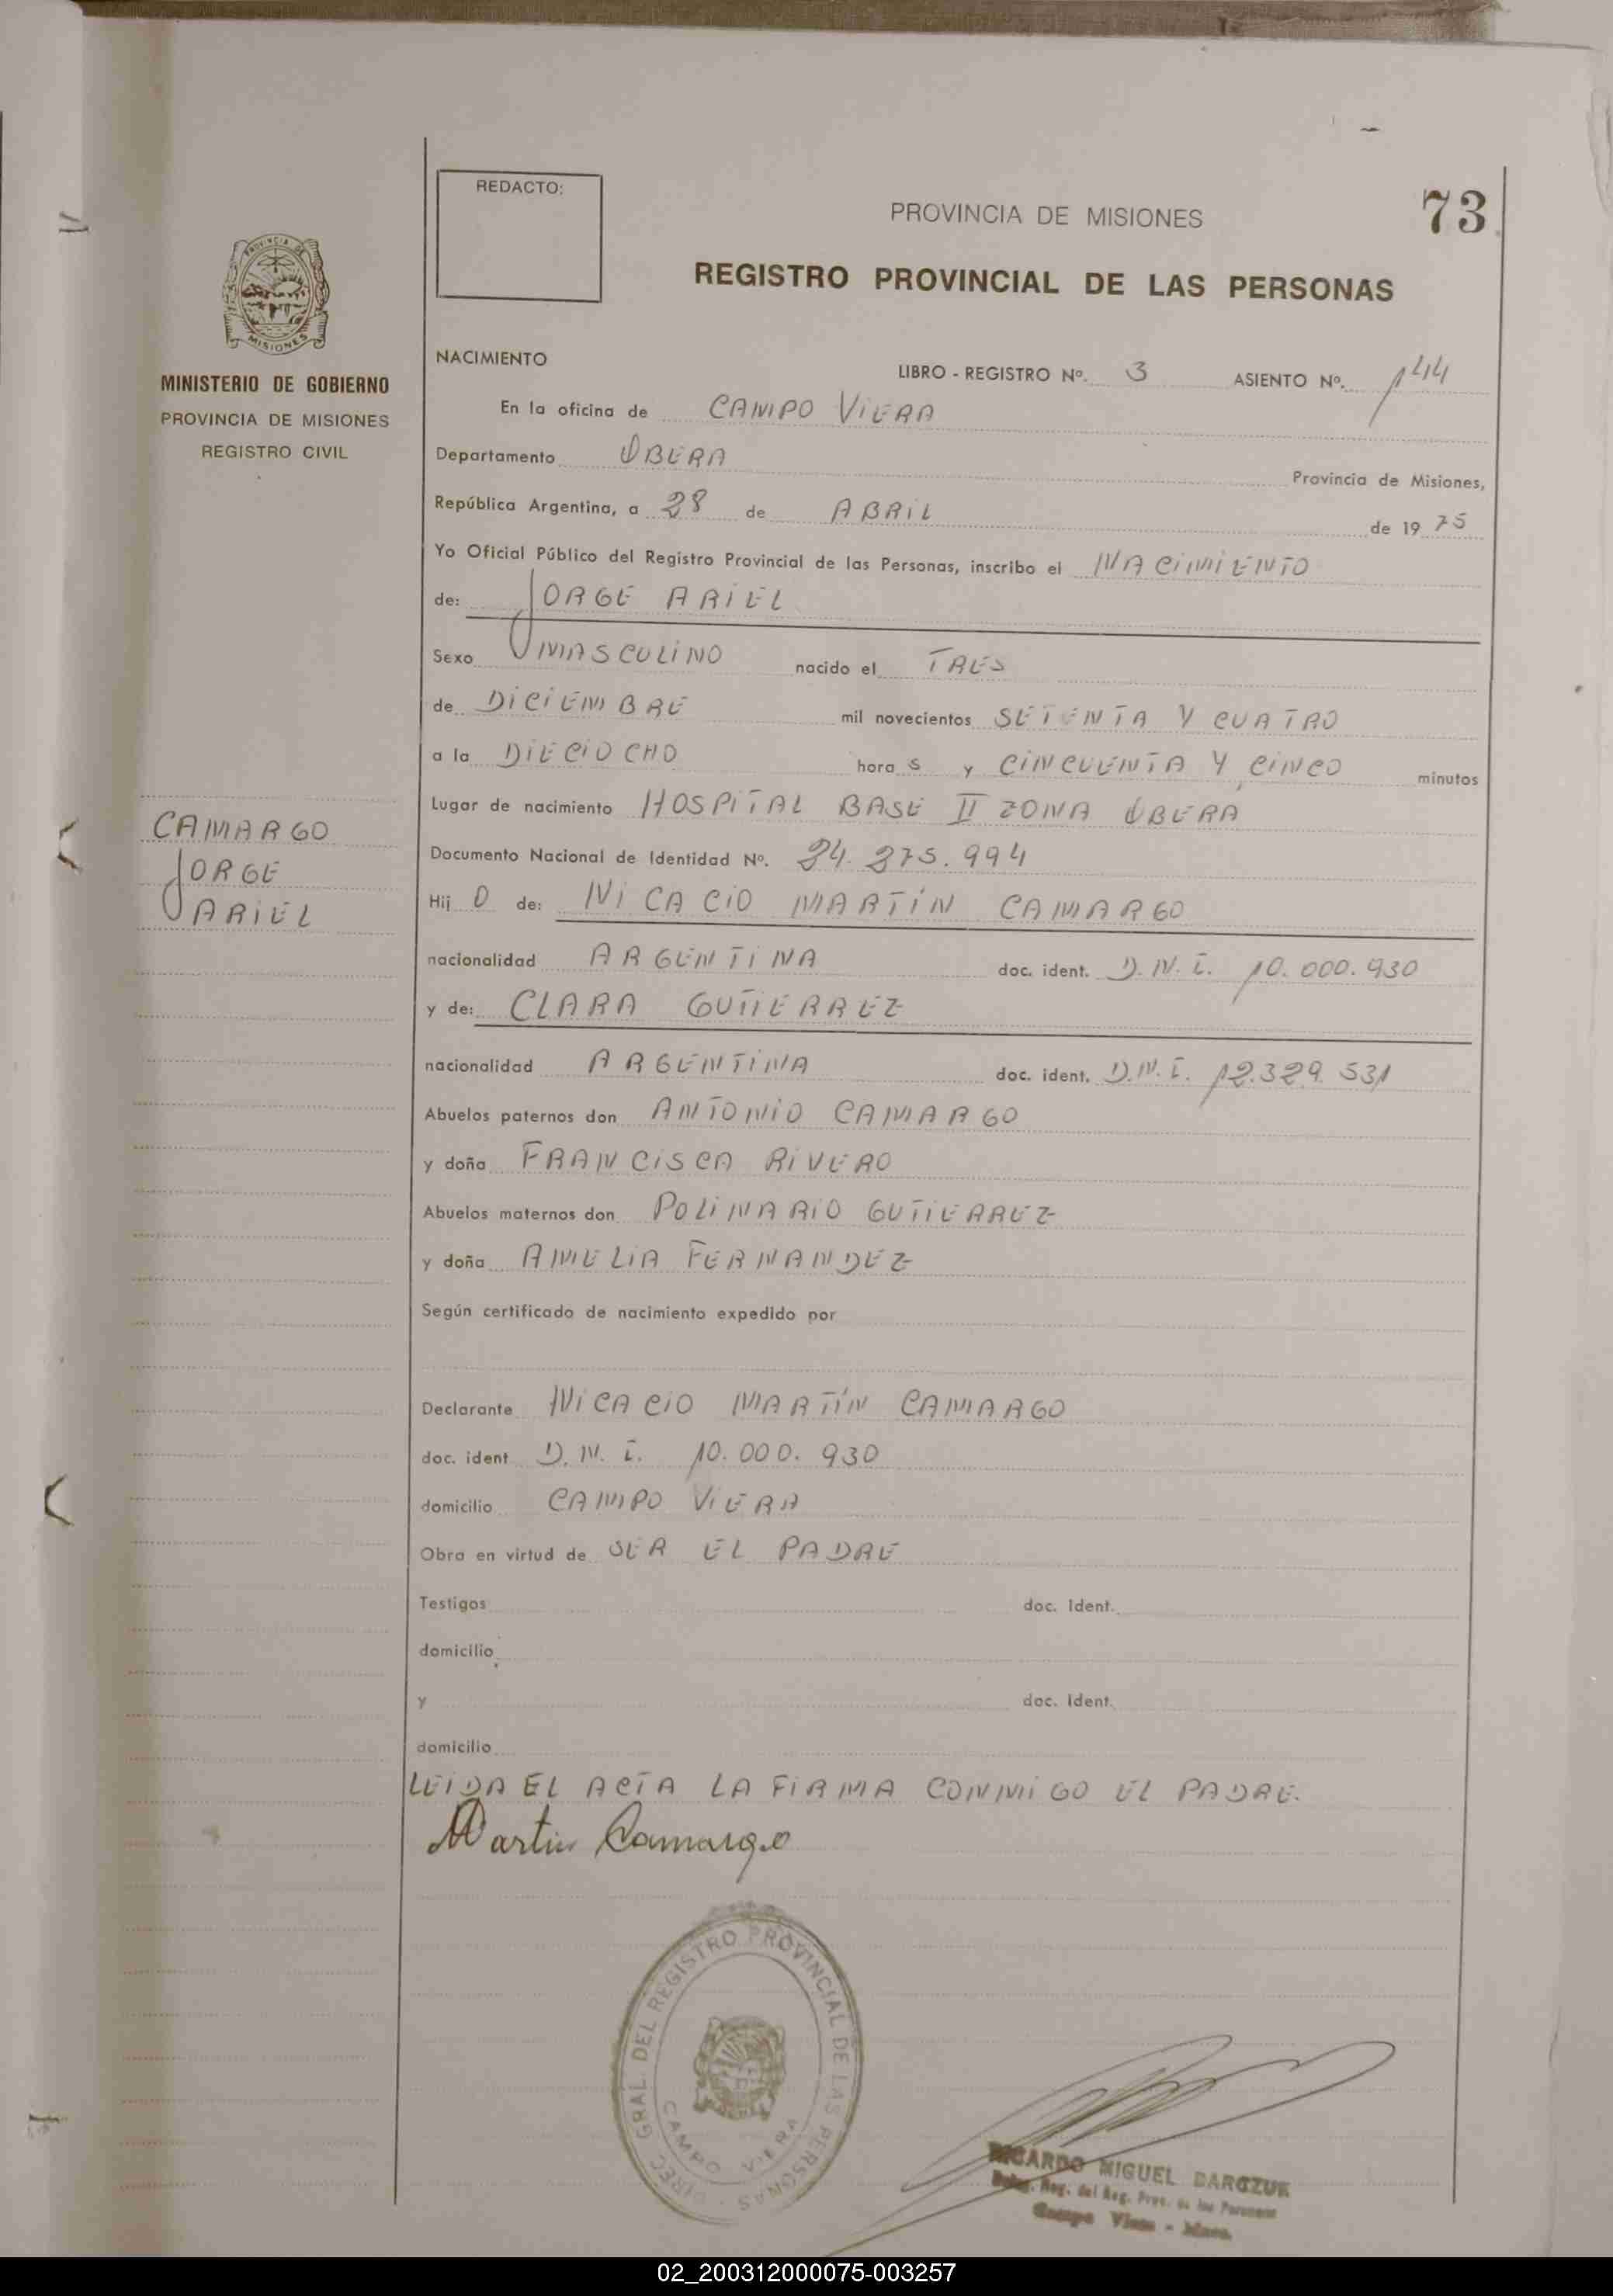 REDACTO:
PROVINCIA DE MISIONES
73
REGISTRO PROVINCIAL DE LAS PERSONAS
PROVINCIA DE
MISIONES
MINISTERIO DE GOBIERNO
PROVINCIA DE MISIONES
REGISTRO CIVIL
NACIMIENTO
LIBRO - REGISTRO Nº. 3 ASIENTO Nº. 144
En la oficina de CAMPO VIERA
Departamento OBERA Provincia de Misiones,
República Argentina, a 28 de ABRIL de 1975
Yo Oficial Público del Registro Provincial de las Personas, inscribo el NACIMIENTO
de: JORGE ARIEL
Sexo MASCULINO nacido el TRES
de DICIEMBRE mil novecientos SETENTA Y CUATRO
a la DIECIOCHO horas y CINCUENTA Y CINCO minutos
Lugar de nacimiento HOSPITAL BASE II ZONA OBERA
CAMARGO
JORGE
ARIEL
Documento Nacional de Identidad Nº. 24.375.994
Hijo de: NICACIO MARTÍN CAMARGO
nacionalidad ARGENTINA doc. ident. D.N.I. 10.000.930
y de: CLARA GUTIERREZ
nacionalidad ARGENTINA doc. ident. D.N.I. 12.329.531
Abuelos paternos don ANTONIO CAMARGO
y doña FRANCISCA RIVERO
Abuelos maternos don POLINARIO GUTIERREZ
y doña AMELIA FERNANDEZ
Según certificado de nacimiento expedido por
Declarante NICACIO MARTÍN CAMARGO
doc. ident. D.N.I. 10.000.930
domicilio CAMPO VIERA
Obra en virtud de SER EL PADRE
Testigos doc. Ident.
domicilio
y doc. Ident.
domicilio
LEIDA EL ACTA LA FIRMA CONMIGO EL PADRE.
Martin Camargo
DIREC. GRAL. DEL REGISTRO PROVINCIAL DE LAS PERSONAS
CAMPO VIERA
RICARDO MIGUEL DARCZUK
Reg. del Reg. Prov. de las Personas
Campo Viera - Mnes.
02_200312000075-003257